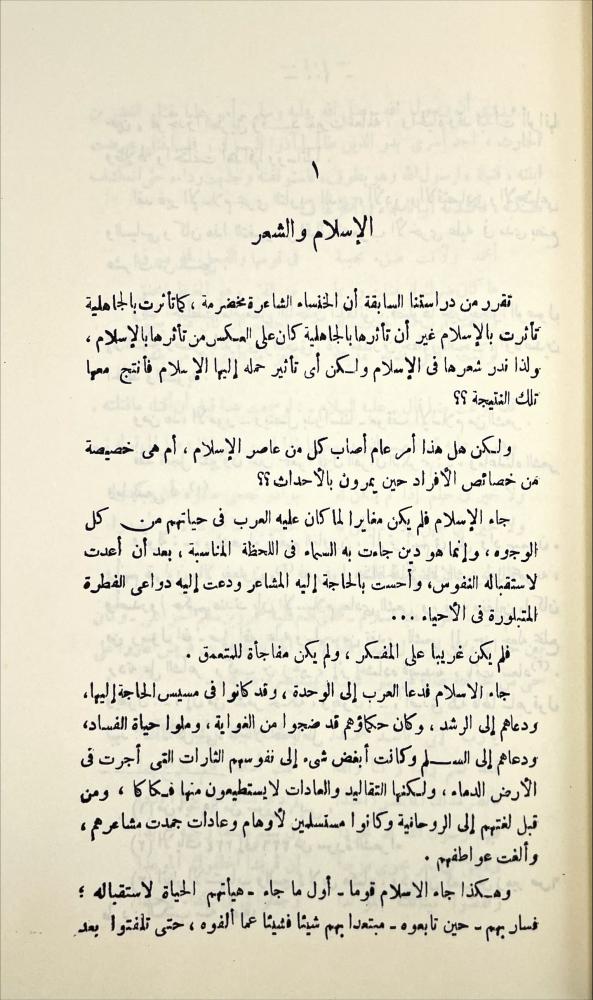 ١
الإسلام والشعر
تقرر من دراستنا السابقة أن الخنساء الشاعرة مخضرمة ، كما تأثرت بالجاهلية
تأثرت بالإسلام غير أن تأثرها بالجاهلية كان على العكس من تأثرها بالإسلام ،
ولذا ندر شعرها فى الإسلام ولكن أى تأثير حمله إليها الإسلام فأنتج معها
تلك النتيجة ؟؟
ولكن هل هذا أمر عام أصاب كل من عاصر الإسلام ، أم هى خصيصة
من خصائص الأفراد حين يمرون بالأحداث ؟؟
جاء الإسلام فلم يكن مغايرا لما كان عليه العرب فى حياتهم من كل
الوجوه ، وإنما هو دين جاءت به السماء فى اللحظة المناسبة ، بعد أن أعدت
لاستقباله النفوس، وأحست بالحاجة إليه المشاعر ودعت إليه دواعى الفطرة
المتبلورة فى الأحياء ...
فلم يكن غريبا على المفكر ، ولم يكن مفاجأة للمتعمق .
جاء الاسلام فدعا العرب إلى الوحدة ، وقد كانوا فى مسيس الحاجة إليها،
ودعاهم إلى الرشد ، وكان حكماؤهم قد ضجوا من الغواية ، وملوا حياة الفساد،
ودعاهم إلى السلم وكانت أبغض شىء إلى نفوسهم الثارات التى أجرت فى
الأرض الدماء ، ولكنها التقاليد والعادات لا يستطيعون منها فكاكا ، ومن
قبل لفتهم إلى الروحانية وكانوا مستسلمين لأوهام وعادات جمدت مشاعرهم ،
وألغت عواطفهم .
وهكذا جاء الاسلام قوما ـ أول ما جاء ـ هيأتهم الحياة لاستقباله ؛
فسار بهم ـ حين تابعوه ـ مبتعدا بهم شيئا فشيئا عما ألفوه ، حتى تلفتوا بعد